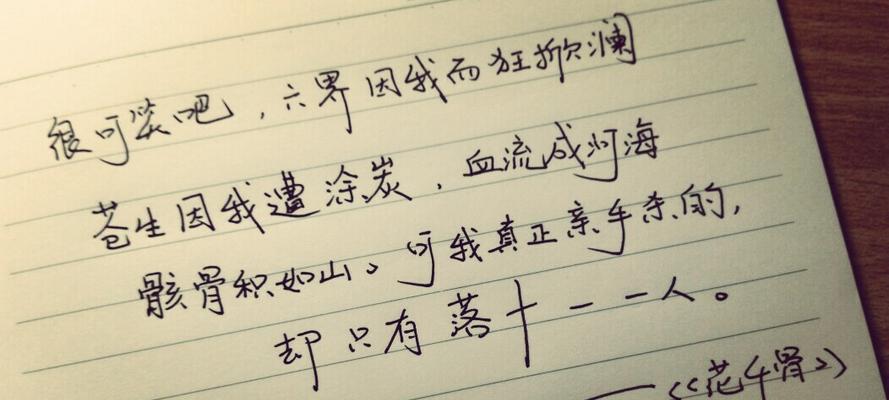 很可笑吧，六界因我而狂掀澜
苍生因我遭涂炭，血流成河海
骸骨积如山。可我真正亲手杀的，
却只有落十一一人。
——《花千骨》